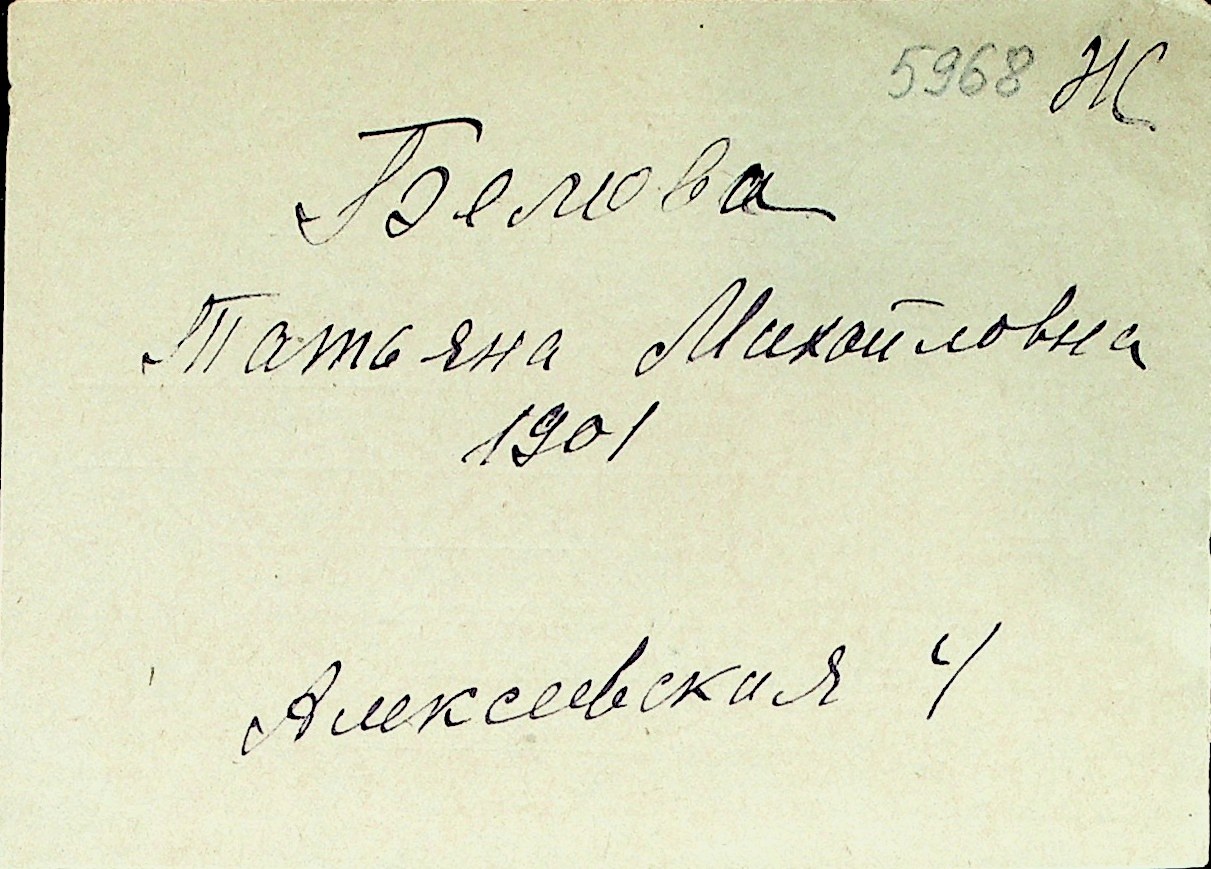 5968 Ж
Белова
Татьяна Михайловна
1901
Алексеевская 4